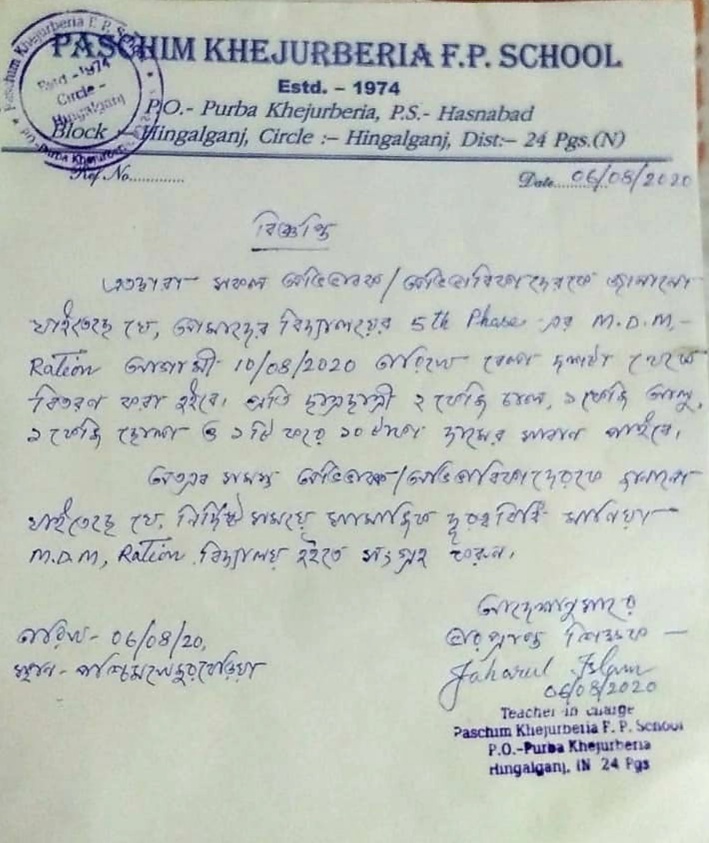 PASCHIM KHEJURBERIA F.P. SCHOOL
Estd. – 1974
P.O.- Purba Khejurberia, P.S.- Hasnabad
Block :– Hingalganj, Circle :– Hingalganj, Dist:– 24 Pgs.(N)
Paschim Khejurberia F. P. School
Estd -1974
Circle -
Hingalganj
Ref No.............
Date.......06/08/2020
বিজ্ঞপ্তি
এতদ্বারা সকল অভিভাবক/অভিভাবিকাদেরকে জানানো
যাইতেছে যে, আমাদের বিদ্যালয়ের 5th Phase এর M.D.M,-
Ration আগামী 10/08/2020 তারিখে বেলা দশটা থেকে
বিতরণ করা হইবে। প্রতি ছাত্রছাত্রী ২ কেজি চাল, ১ কেজি আলু,
১ কেজি ছোলা ও ১টি করে ১০ টাকা দামের সাবান পাইবে।
অতএব সমস্ত অভিভাবক/অভিভাবিকাদেরকে জানানো
যাইতেছে যে, নির্দিষ্ট সময়ে সামাজিক দূরত্ববিধি মানিয়া
M.D.M, Ration বিদ্যালয় হইতে সংগ্রহ করুন।
আদেশানুসারে
ভারপ্রাপ্ত শিক্ষক —
Jaharul Islam
06/08/2020
Teacher in charge
Paschim Khejurberia F. P. School
P.O.-Purba Khejurberia
Hingalganj, (N) 24 Pgs
তারিখ- 06/08/20,
স্থান- পশ্চিম খেজুরবেড়িয়া